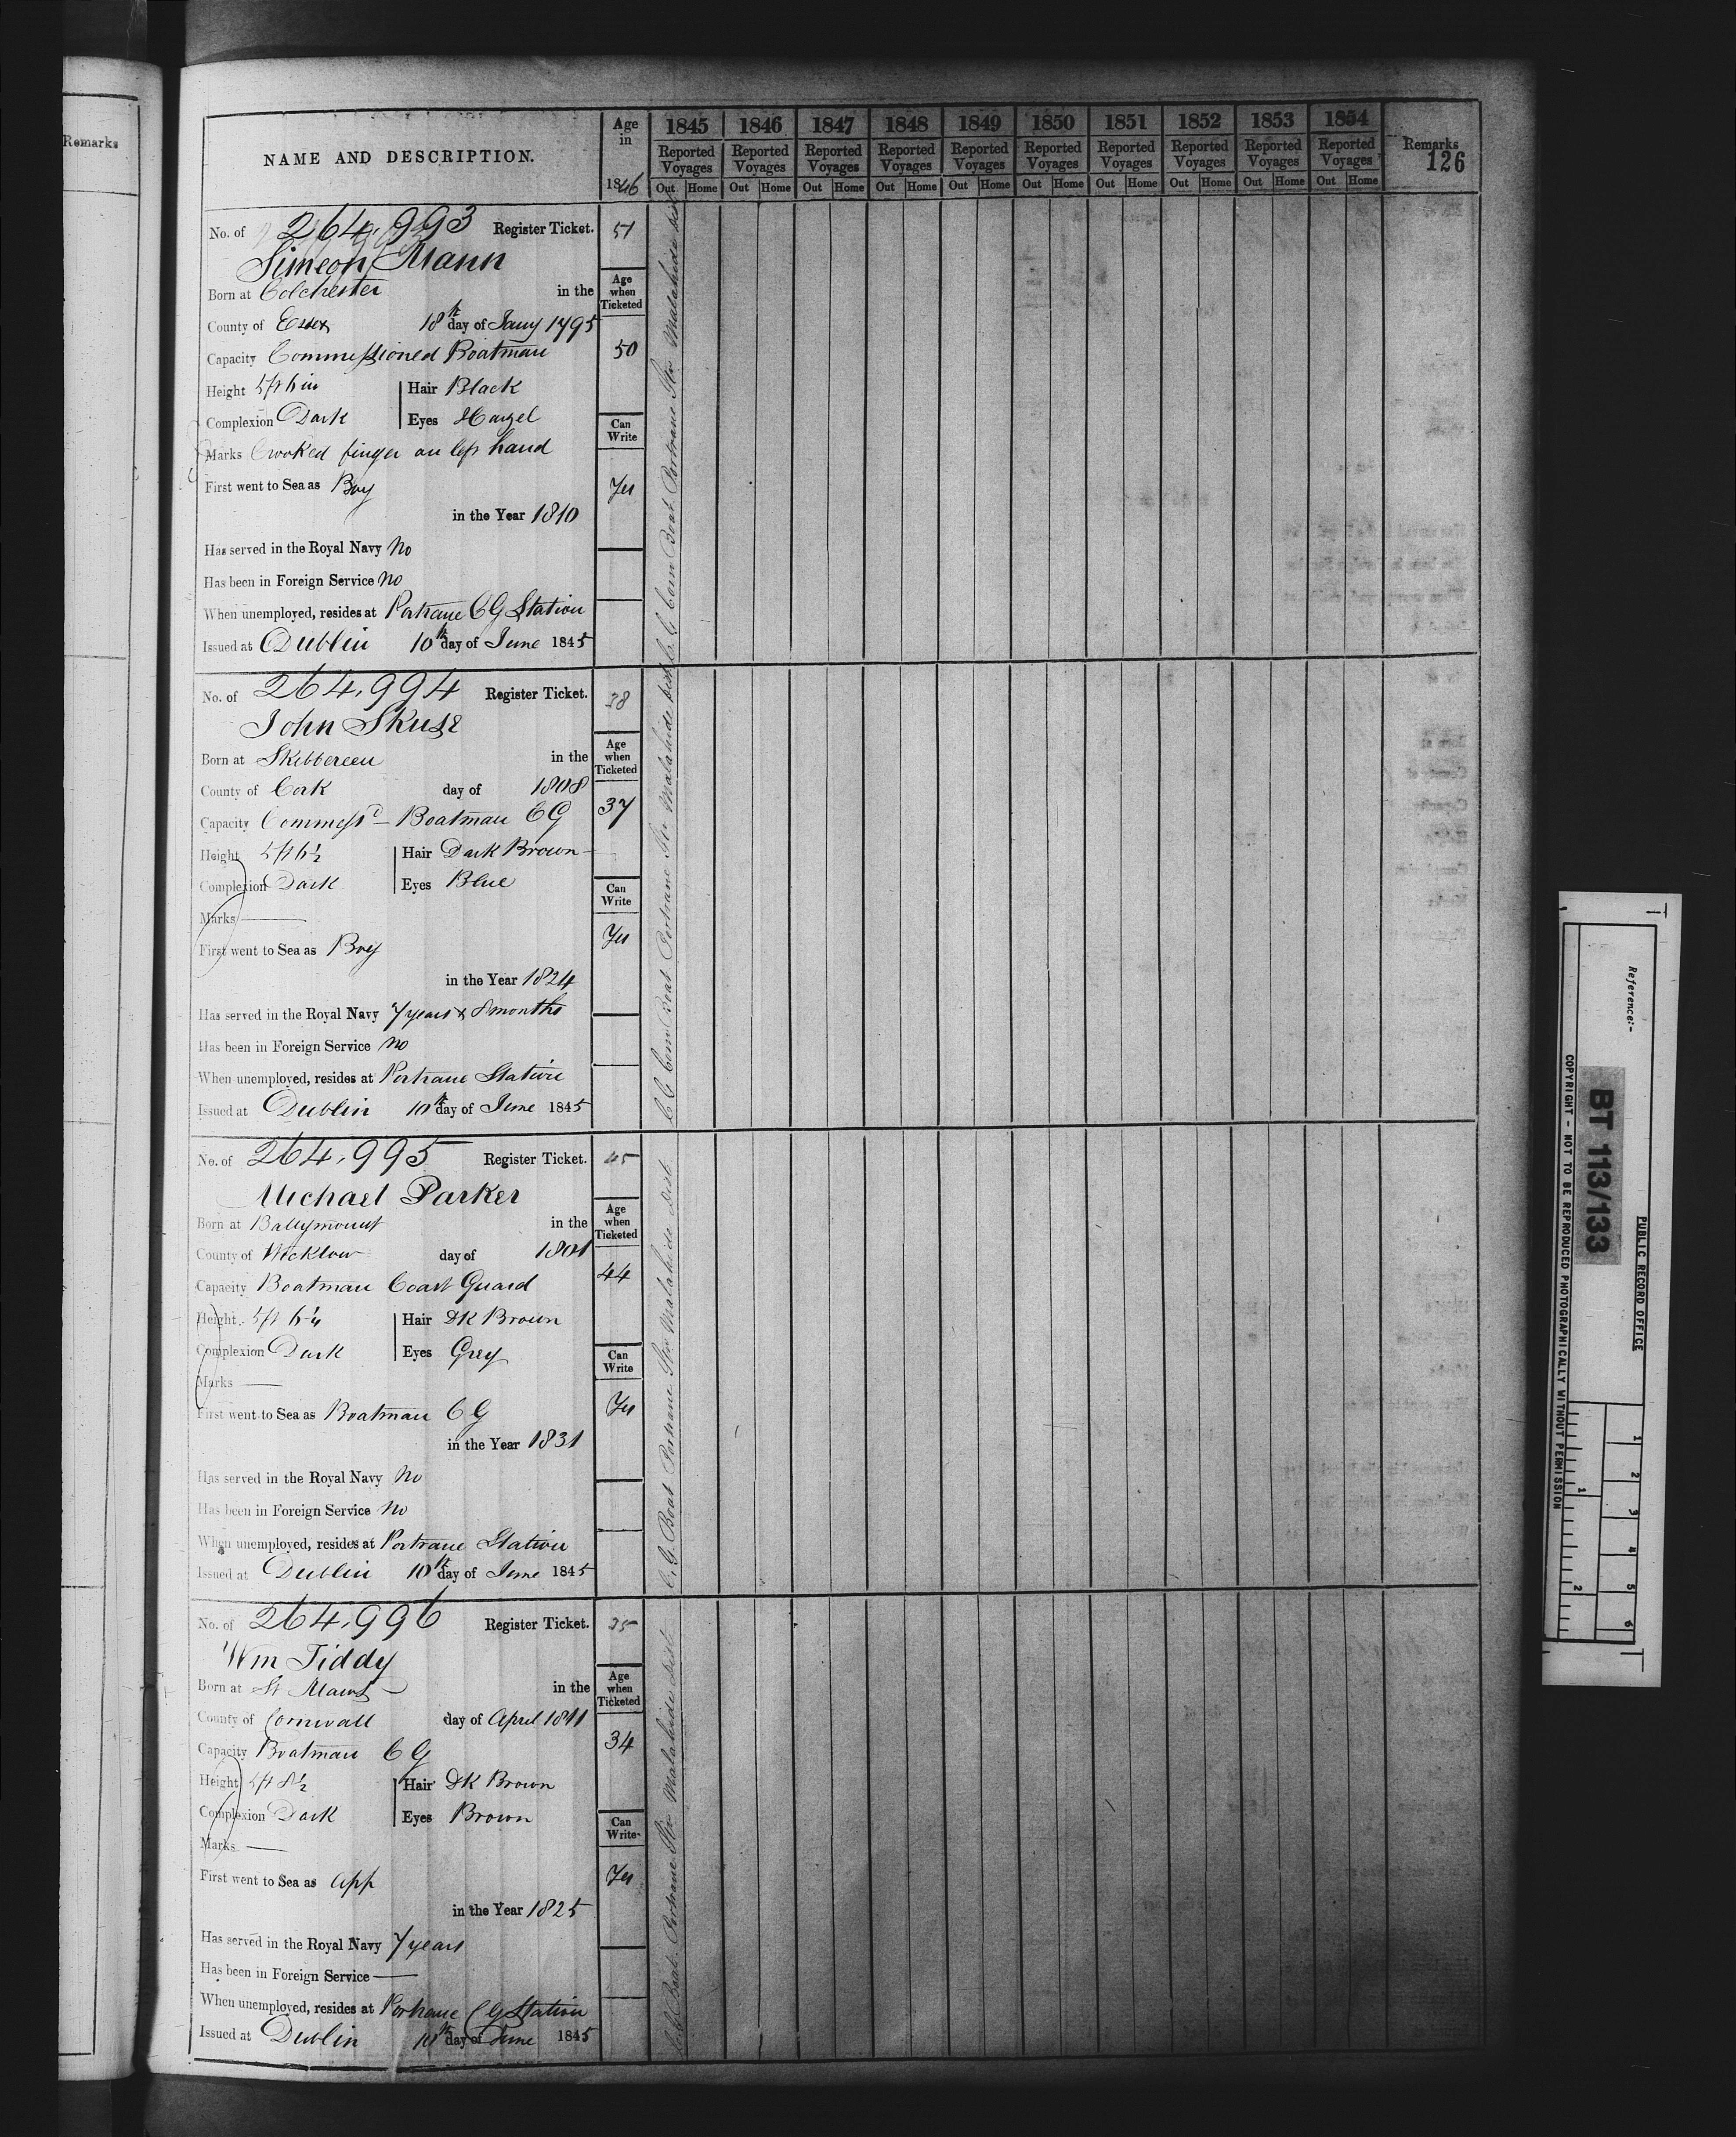 Remarks
NAME AND DESCRIPTION.
Age in 1846
1845 1846 1847 1848 1849 1850 1851 1852 1853 1854
Reported Voyages Reported Voyages Reported Voyages Reported Voyages Reported Voyages Reported Voyages Reported Voyages Reported Voyages Reported Voyages Reported Voyages
Out Home Out Home Out Home Out Home Out Home Out Home Out Home Out Home Out Home Out Home
Remarks
126
No. of 264,993 Register Ticket. 51
Simeon Mann
Born at Colchester in the
Age when Ticketed
County of Essex 18th day of Jany 1795
Capacity Commissioned Boatman 50
Height 5ft 6in Hair Black
Complexion Dark Eyes Hazel
Can Write
Marks Crooked finger on left hand
First went to Sea as Boy Yes
in the Year 1810
Has served in the Royal Navy No
Has been in Foreign Service No
When unemployed, resides at Portrane CG Station
Issued at Dublin 10th day of June 1845
C G Comn Boat Portrane Stn Malahide Dist
No. of 264,994 Register Ticket. 38
John Skuse
Born at Skibbereen in the
Age when Ticketed
County of Cork day of 1808
Capacity Commissd Boatman CG 37
Height 5ft 6½ Hair Dark Brown
Complexion Dark Eyes Blue
Can Write
Marks —
First went to Sea as Boy Yes
in the Year 1824
Has served in the Royal Navy 7 years & 8 months
Has been in Foreign Service No
When unemployed, resides at Portrane Station
Issued at Dublin 10th day of June 1845
C G Comn Boat Portrane Stn Malahide Dist
No. of 264,995 Register Ticket. 45
Michael Parker
Born at Ballymount in the
Age when Ticketed
County of Wicklow day of 1801
Capacity Boatman Coast Guard 44
Height 5ft 6¼ Hair DK Brown
Complexion Dark Eyes Grey
Can Write
Marks —
First went to Sea as Boatman CG Yes
in the Year 1831
Has served in the Royal Navy No
Has been in Foreign Service No
When unemployed, resides at Portrane Station
Issued at Dublin 10th day of June 1845
C. G. Boat Portrane Stn Malahide Dist
No. of 264,996 Register Ticket. 35
Wm Tiddy
Born at St Maws in the
Age when Ticketed
County of Cornwall day of April 1811
Capacity Boatman CG 34
Height 5ft 8½ Hair DK Brown
Complexion Dark Eyes Brown
Can Write
Marks —
First went to Sea as App Yes
in the Year 1825
Has served in the Royal Navy 7 years
Has been in Foreign Service —
When unemployed, resides at Portrane CG Station
Issued at Dublin 10th day of June 1845
C G Boat Portrane Stn Malahide Dist
PUBLIC RECORD OFFICE
Reference:-
BT 113/133
COPYRIGHT - NOT TO BE REPRODUCED PHOTOGRAPHICALLY WITHOUT PERMISSION
1 2 3 4 5 6
1 2